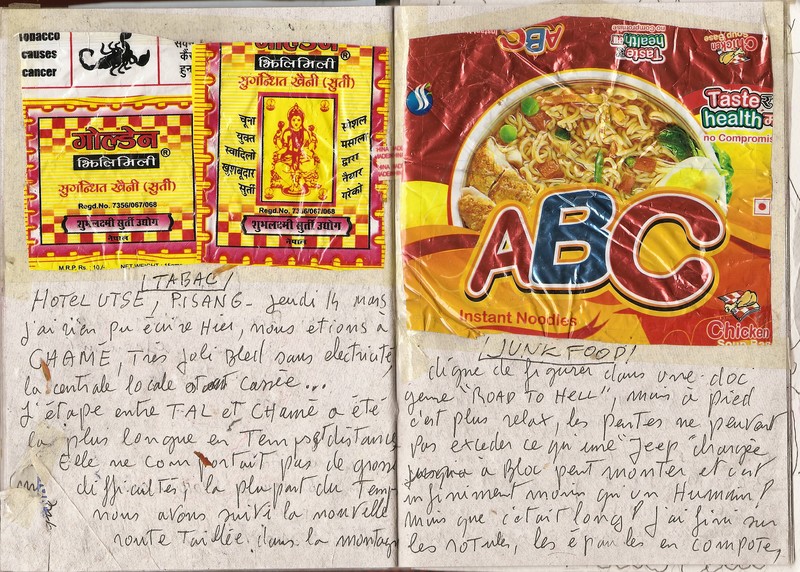 Tobacco
causes
cancer
गोल्डेन
झिलिमिली®
सुगन्धित खैनी (सुर्ती)
Regd.No. 7356/067/068
शुभलक्ष्मी सुर्ती उद्योग
नेपाल
M.R.P. Rs : 10. NET WEIGHT
गोल्डेन
झिलिमिली®
सुगन्धित खैनी (सुर्ती)
चूना
युक्त
स्वादिलो
खुशबूदार
सुर्ती
सोशल
मसाला
द्वारा
तैयार
गरेको
Regd.No. 7356/067/068
शुभलक्ष्मी सुर्ती उद्योग
नेपाल
[TABAC]
HOTEL UTSE, PISANG - Jeudi 14 mars
j'ai rien pu écrire Hier, nous etions à
CHAMÉ, Très joli Bled sans electricité
la centrale locale était cassée...
L'étape entre TAL et CHAMÉ a été
la plus longue en Temps et distance
Elle ne comportait pas de grosses
difficultés, la plupart du Temps
nous avons suivi la nouvelle
route Taillée dans la montagne
ABC
Taste &
health
no Compromise
Chicken
Soup Base
Taste
health
no Compromis
ABC
Instant Noodles
Chicken
Soup Bas
[JUNK FOOD]
digne de figurer dans une doc
genre "ROAD TO HELL", mais à pied
c'est plus relax, les pentes ne peuvent
pas exceder ce qu'une "Jeep" chargée
jusqu'a a Bloc peut monter et c'est
infiniment moins qu'un Humain!
Mais que c'était long! j'ai fini sur
les rotules, les épaules en compote,